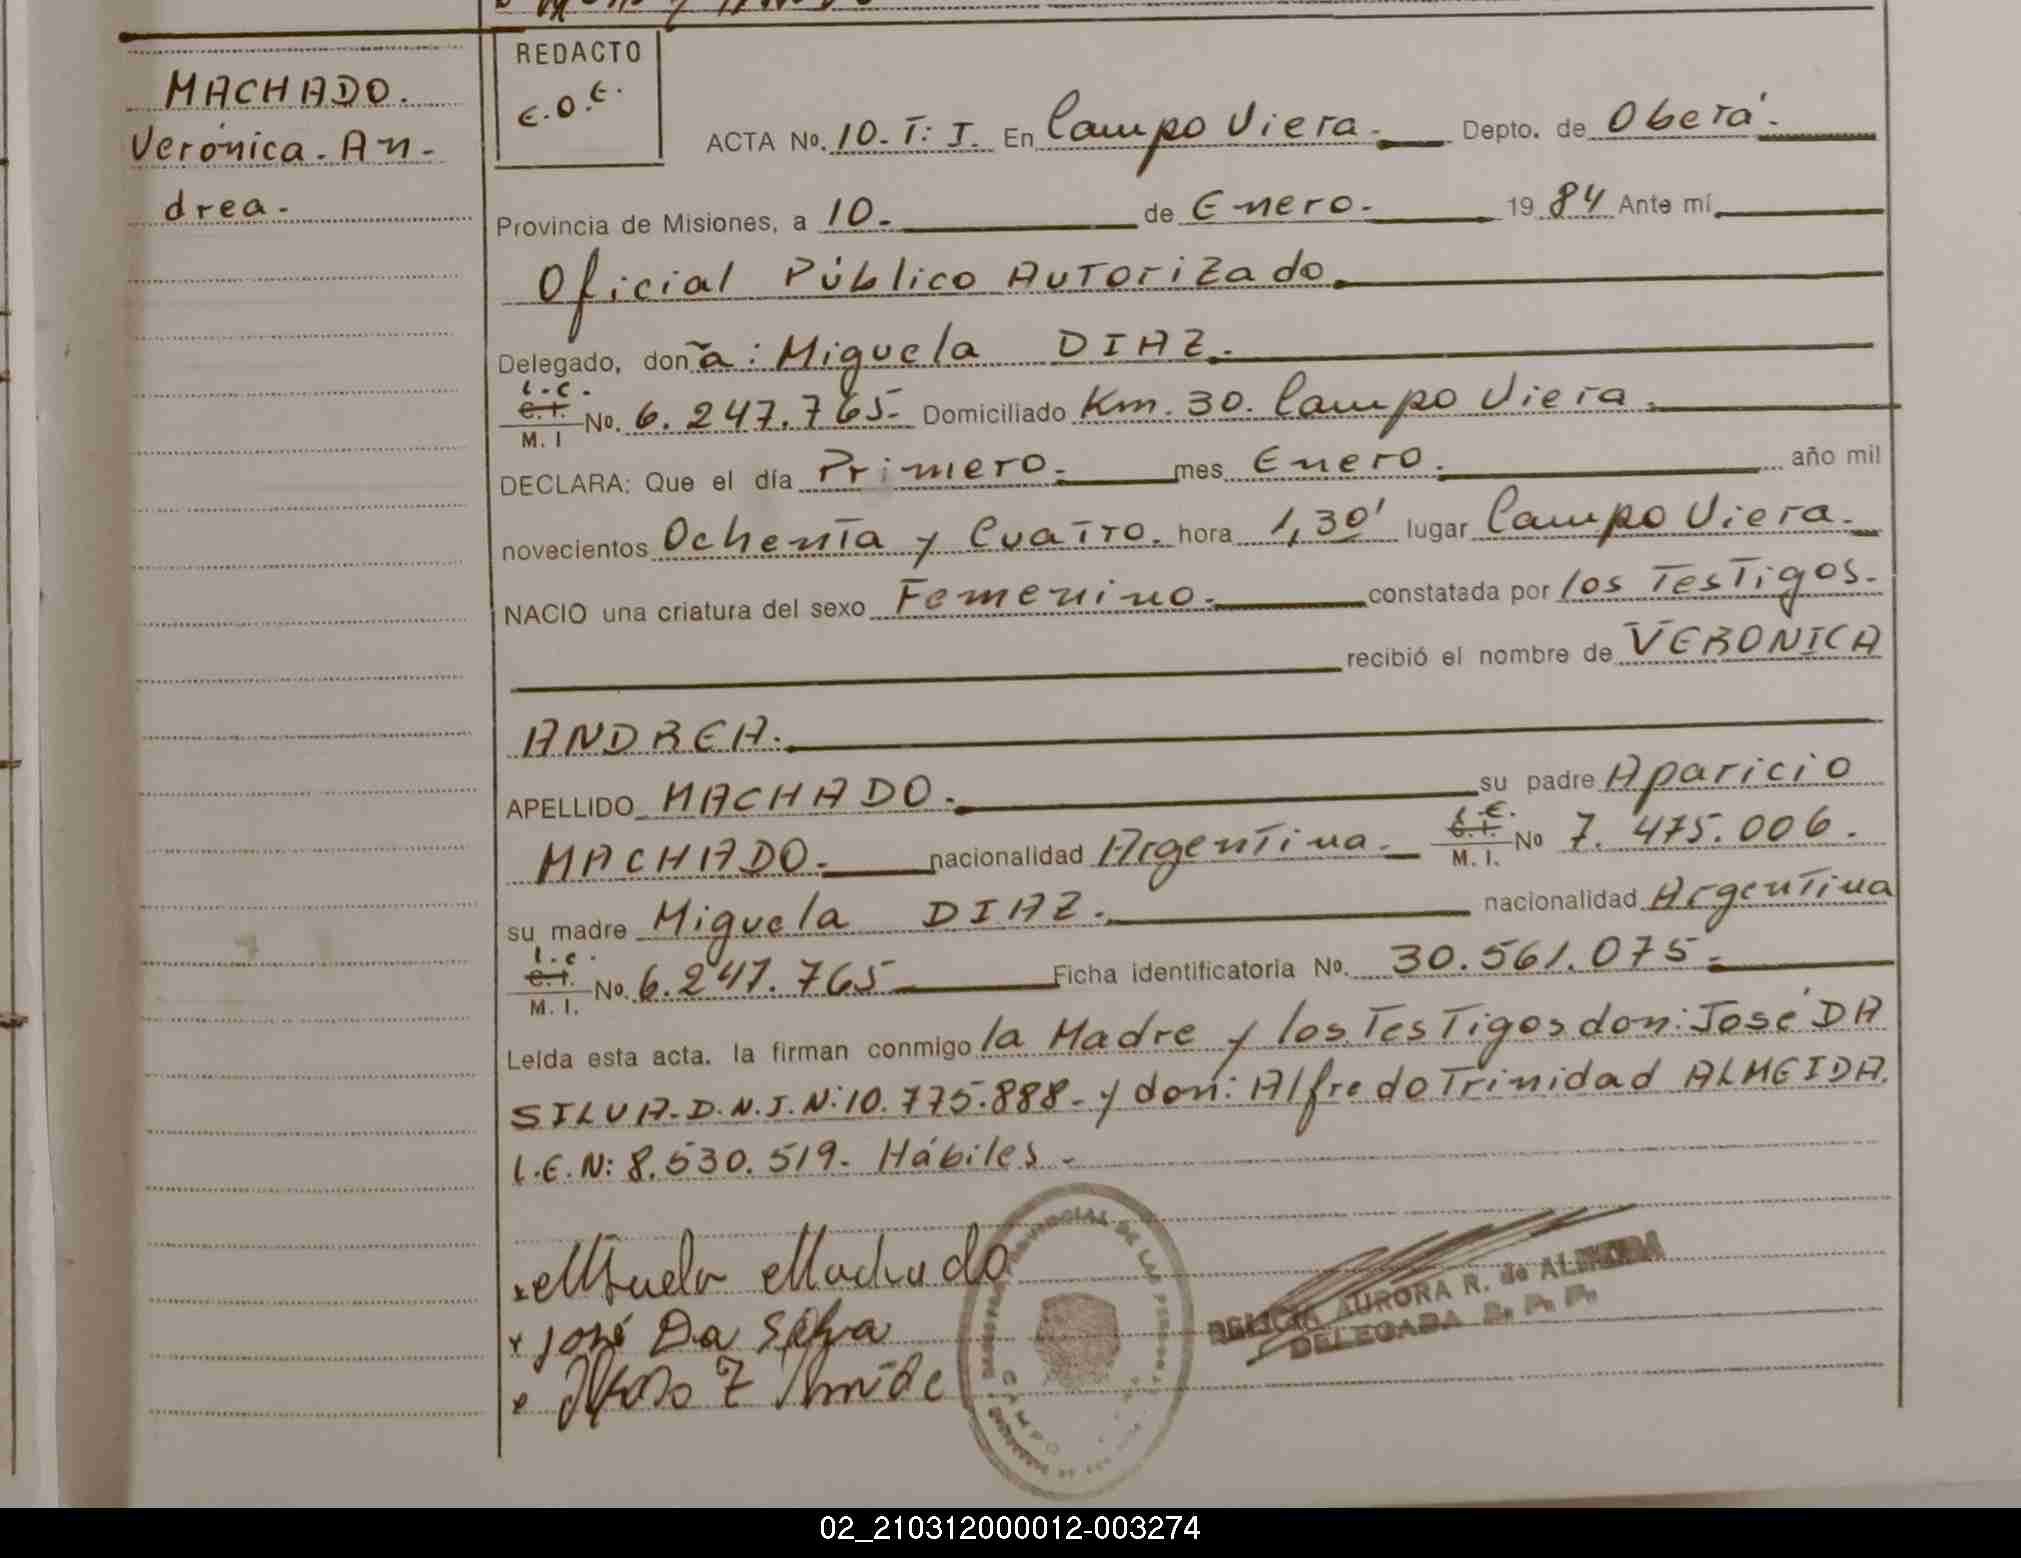 MACHADO.
Verónica. An-
drea.
REDACTO
E.O.E.
ACTA No. 10. T: I. En Campo Viera. Depto. de Oberá.
Provincia de Misiones, a 10. de Enero. 1984 Ante mí
Oficial Público Autorizado
Delegado, doña: Miguela DIAZ.
L.C.
C.I.
M. I No. 6.247.765. Domiciliado Km. 30. Campo Viera.
DECLARA: Que el día Primero. mes Enero. año mil
novecientos Ochenta y Cuatro. hora 1,30' lugar Campo Viera.
NACIO una criatura del sexo Femenino. constatada por los Testigos.
recibió el nombre de VERONICA
ANDREA.
APELLIDO MACHADO. su padre Aparicio
MACHADO. nacionalidad Argentina. L.E.
C.I.
M. I. No 7.475.006.
su madre Miguela DIAZ. nacionalidad Argentina
L.C.
C.I.
M. I. No. 6.247.765 Ficha identificatoria No. 30.561.075.
Leída esta acta. la firman conmigo la Madre y los Testigos don: José DA
SILVA. D.N.I.N: 10.775.888. y don: Alfredo Trinidad ALMEIDA.
L.E.N: 8.530.519. Hábiles.
Machado
José Da Silva
PROVINCIAL DE LAS PERSONAS
CAMPO
AURORA R. de ALMEIDA
DELEGADA R. P. P.
02_210312000012-003274